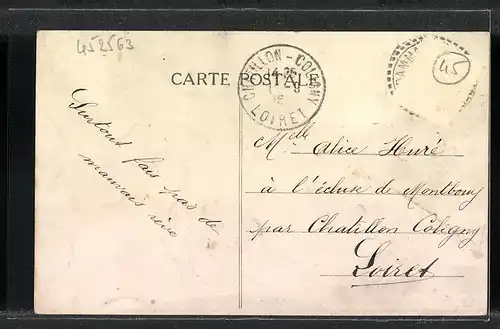 452563
CARTE POSTALE
CHATILLON-COLIGNY
14-25
LOIRET
DAMMA
45
Surtout fais pas de
mauvais rêve
Mlle Alice Huré
à l'écluse de Montbouy
par Chatillon Coligny
Loiret